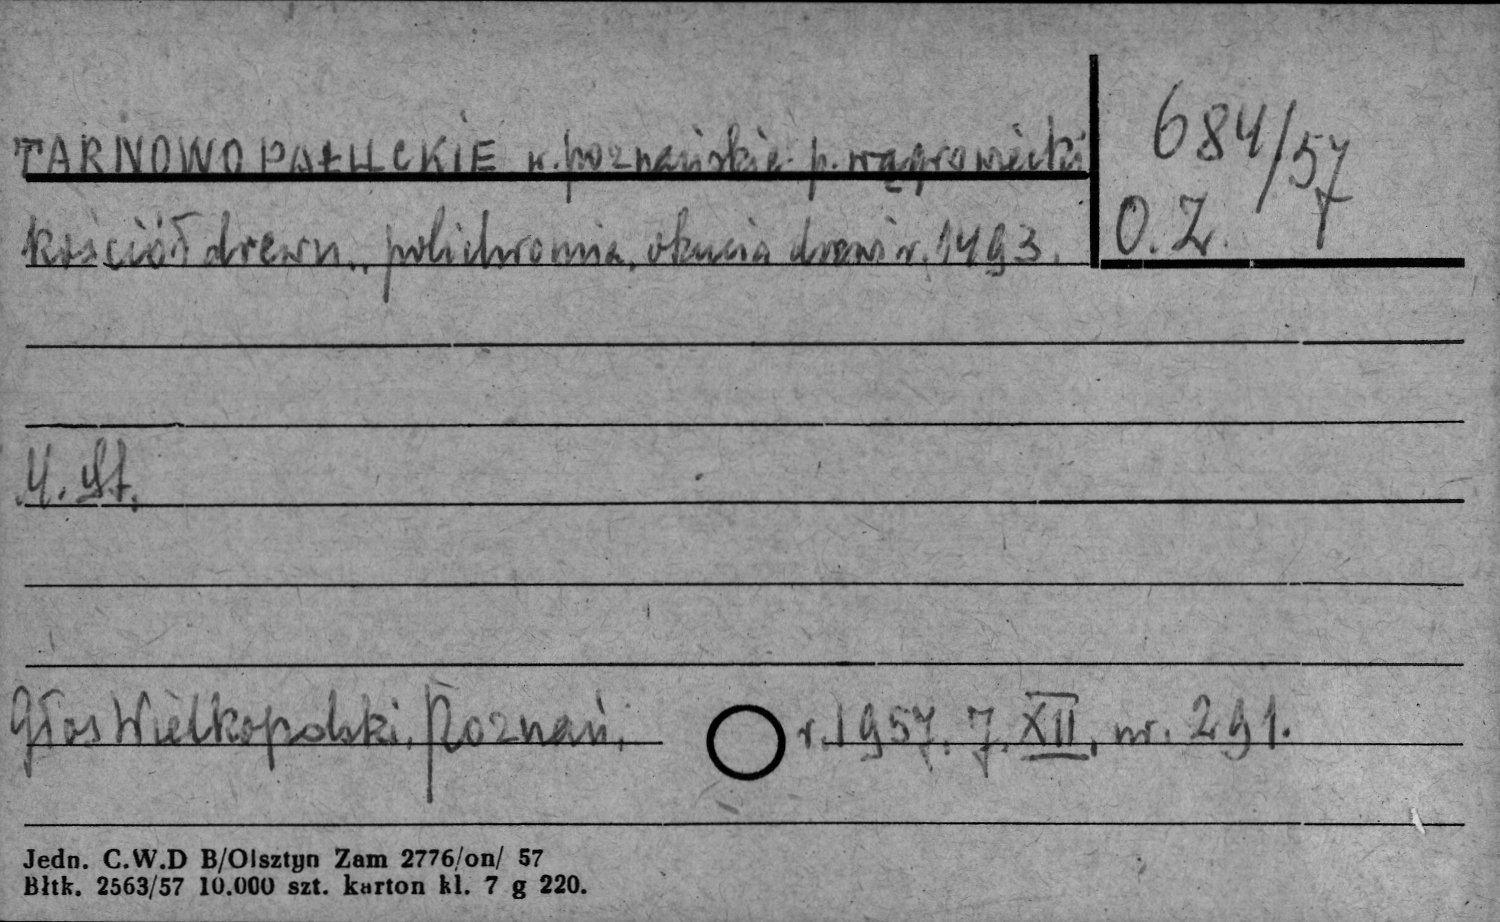 TARNOWO PAŁUCKIE w. poznańskie p. wągrowiecki
684/57
kościół drewn., polichromia, okucia drzwi r. 1493.
O. Z.
M. St.
Głos Wielkopolski. Poznań. r. 1957. 7. XII, nr. 291.
Jedn. C.W.D B/Olsztyn Zam 2776/on/ 57
Błtk. 2563/57 10.000 szt. karton kl. 7 g 220.